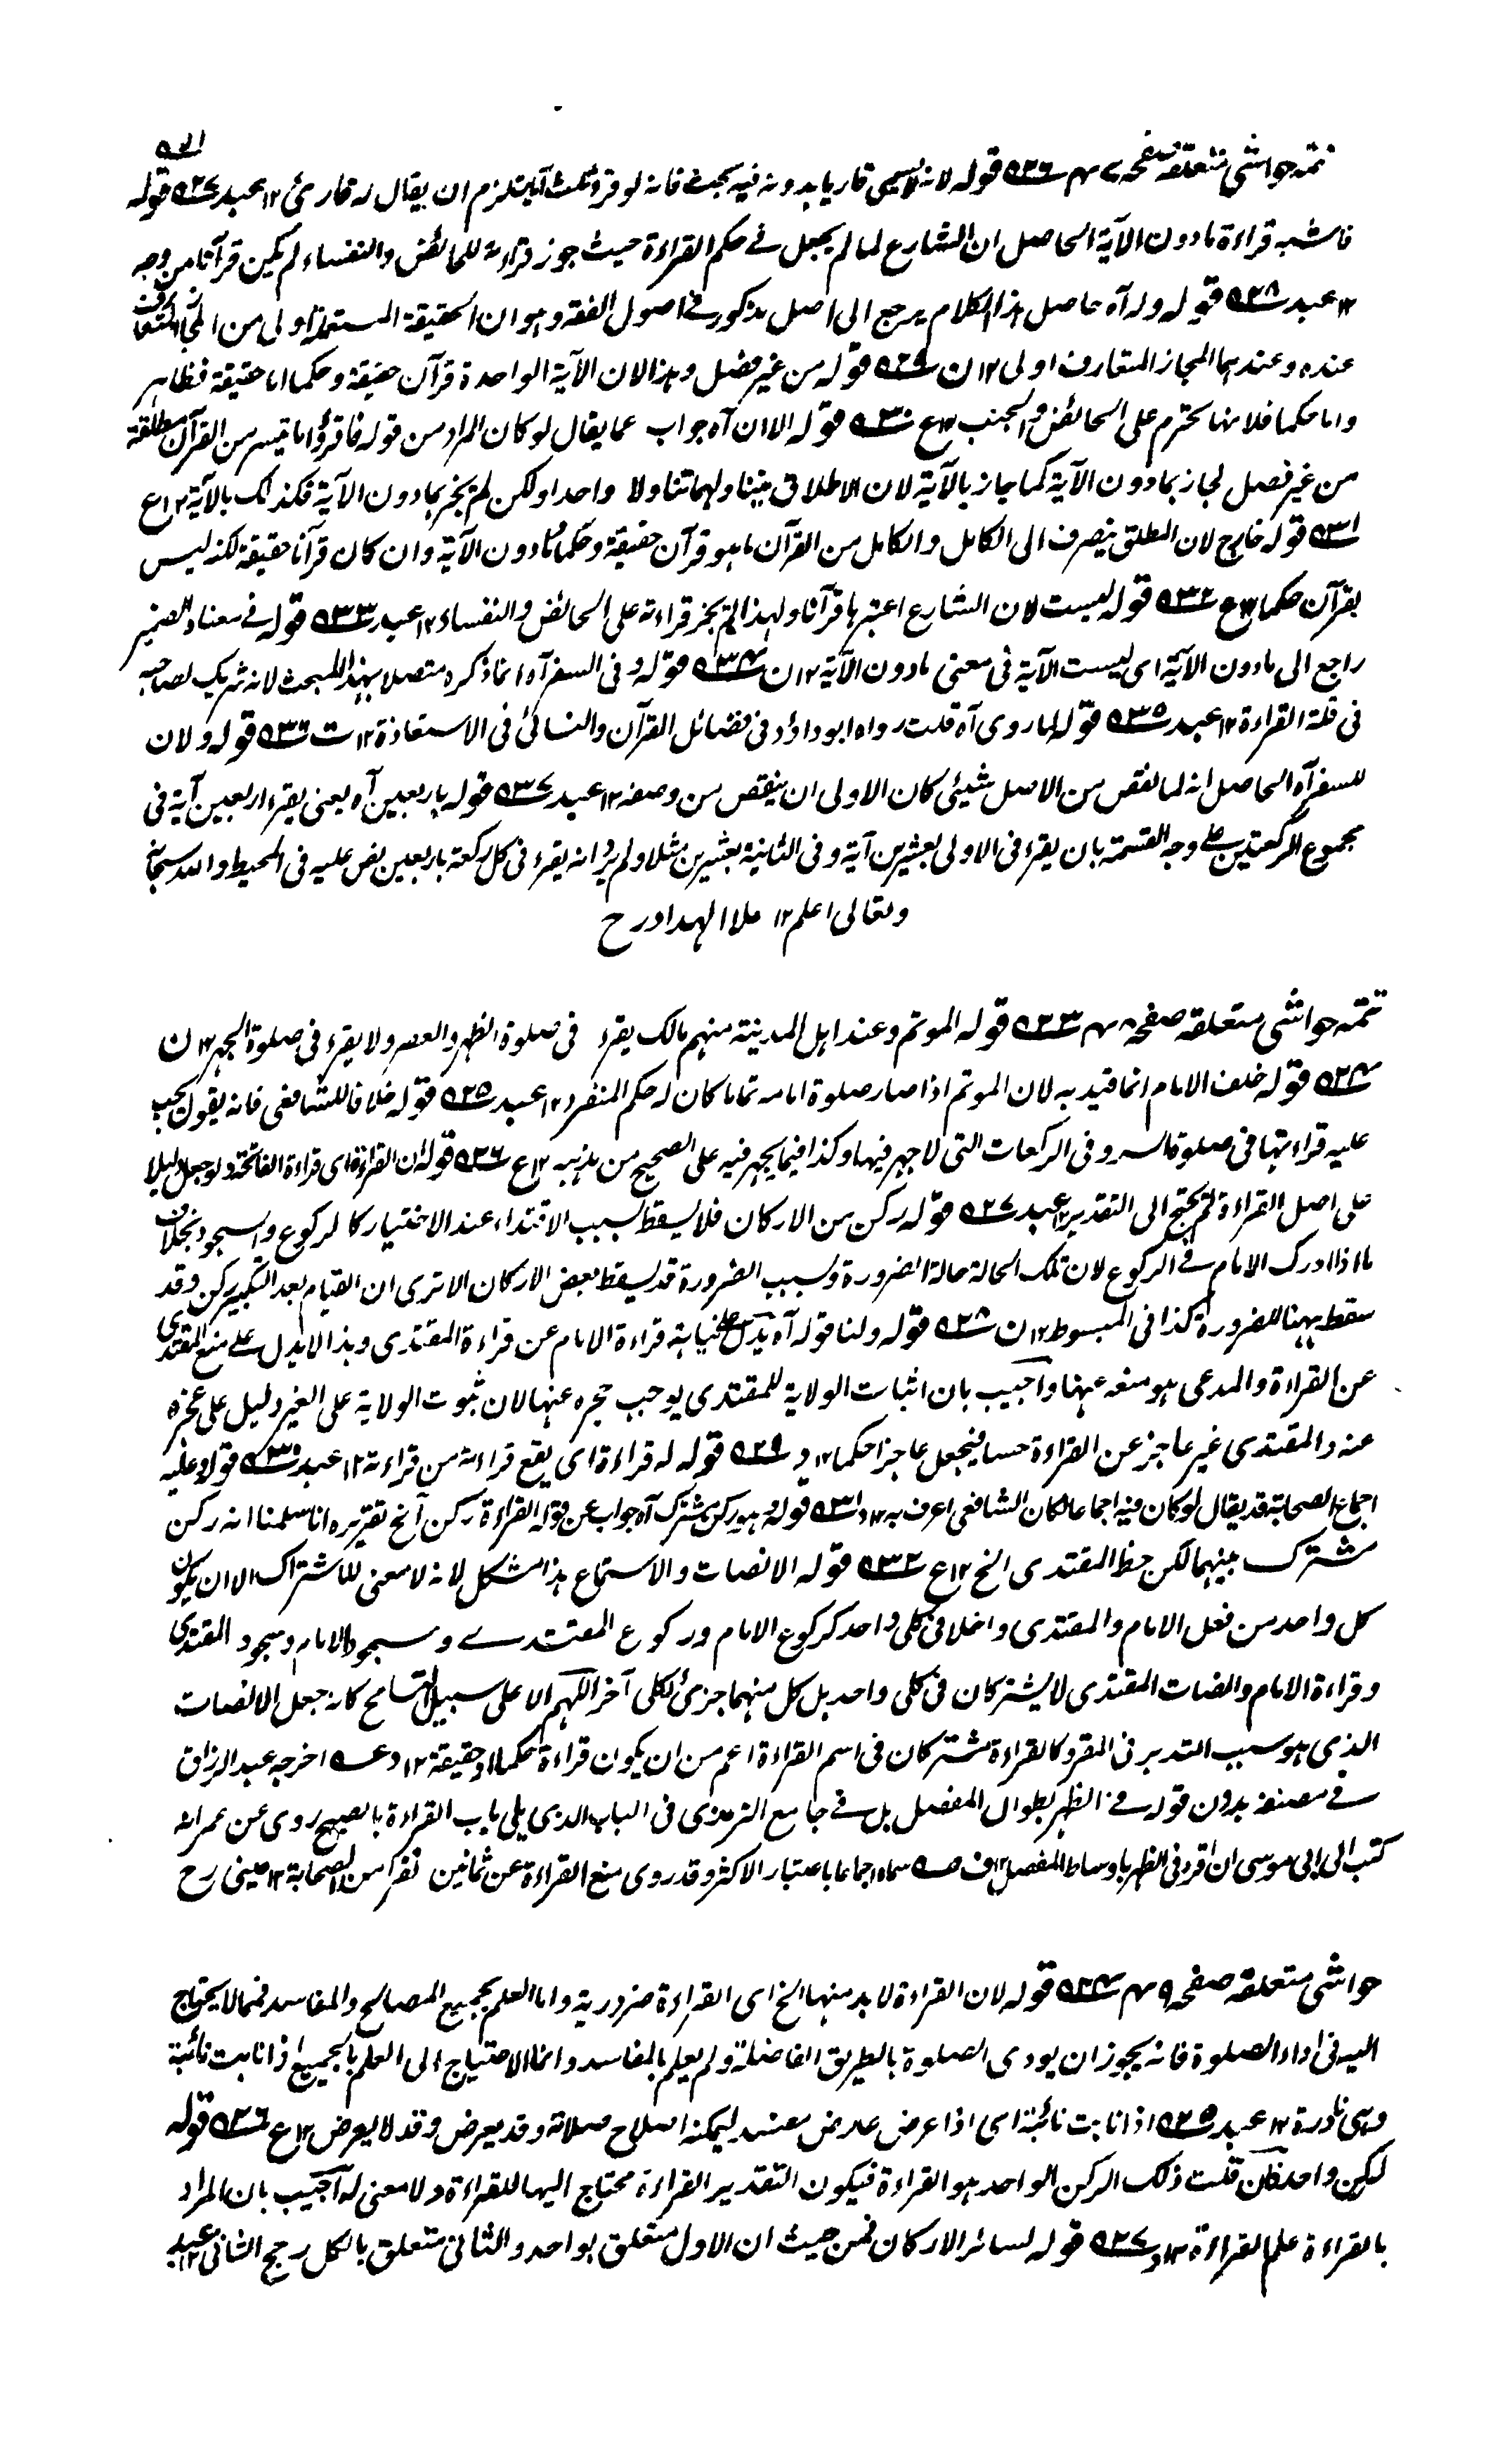 تتمه حواشى متعلقه صفحه ٧ س ٥٢٦ قوله لانه لايسمى قاريا بدونه فيه بحث فانه لو قرء ثلث آيات لزم ان يقال له قارئ ١٢ عبد ٥٢٧ قوله
فاشبه قراءة مادون الآية الحاصل ان الشارع لما لم يجعل فے حكم القراءة حيث جوز قراءته للحائض والنفساء لم يكن قرآنا من وجه
١٢ عبد ٥٢٨ قوله وله آه حاصل هذا الكلام يرجع الى اصل مذكور فے اصول الفقه وهو ان الحقيقة المستعملة اولى من المجاز المتعارف
عنده وعندهما المجاز المتعارف اولى ١٢ ن ٥٢٩ قوله من غير فصل وهذا لان الآية الواحدة قرآن حقيقة وحكما اما حقيقة فظاهر
واما حكما فلانها تحرم على الحائض والجنب ١٢ ع ٥٣٠ قوله الا ان آه جواب عما يقال لو كان المراد من قوله فاقرؤا ما تيسر من القرآن مطلقة
من غير فصل لجاز بمادون الآية كما جاز بالآية لان الاطلاق يتناولهما تناولا واحدا ولكن لم يجز بمادون الآية فكذلك بالآية ١٢ ع
٥٣١ قوله خارج لان المطلق ينصرف الى الكامل والكامل من القرآن ماهو قرآن حقيقة وحكما ومادون الآية وان كان قرآنا حقيقة لكنه ليس
بقرآن حكما ١٢ ع ٥٣٢ قوله ليست لان الشارع اعتبرها قرآنا ولهذا لم يجز قراءته على الحائض والنفساء ١٢ عبد ٥٣٣ قوله فے معناه الضمير
راجع الى مادون الآية اى ليست الآية فى معنى مادون الآية ١٢ ن ٥٣٤ قوله وفى السفر آه انما ذكره متصلا بهذا المبحث لانه شريك لصاحبه
فى قلة القراءة ١٢ عبد ٥٣٥ قوله لما روى آه قلت رواه ابو داؤد فى فضائل القرآن والنسائى فى الاستعاذة ١٢ ت ٥٣٦ قوله ولان
للسفر آه الحاصل انه لما نقص من الاصل شيئى كان الاولى ان ينقص من وصفه ١٢ عبد ٥٣٧ قوله باربعين آه يعنى يقرء اربعين آية فى
مجموع الركعتين على وجه القسمة بان يقرء فى الاولى بعشرين آية وفى الثانية بعشرين مثلا ولم يرد انه يقرء فى كل ركعة باربعين نص عليه فى المحيط والله سبحانه
وتعالى اعلم ١٢ ملا الهداد رح
تتمه حواشى متعلقه صفحه ٨ س ٥٢٣ قوله الموتم وعند اهل المدينة منهم مالك يقرء فى صلوة الظهر والعصر ولا يقرء فى صلوة الجهر ١٢ ن
٥٢٤ قوله خلف الامام انما قيد به لان الموتم اذا صار صلوة امامه تماما كان له حكم المنفرد ١٢ عبد ٥٢٥ قوله خلافا للشافعى فانه يقول يجب
عليه قراءتها فى صلوة السر وفى الركعات التى لا جهر فيها وكذا فيما يجهر فيه على الصحيح من مذهبه ١٢ ع ٥٢٦ قوله ان القراءة اى قراءة الفاتحة ولو جعل دليلا
على اصل القراءة لم يحتج الى التقدير ١٢ عبد ٥٢٧ قوله ركن من الاركان فلا يسقط بسبب الاقتداء عند الاختيار كالركوع والسجود بخلاف
ما اذا ادرك الامام فے الركوع لان تلك الحالة حالة الضرورة وبسبب الضرورة قد يسقط بعض الاركان الا ترى ان القيام بعد التكبير ركن وقد
سقط ههنا للضرورة كذا فى المبسوط ١٢ ن ٥٢٨ قوله ولنا قوله آه يدل على نيابة قراءة الامام عن قراءة المقتدى وهذا لا يدل على منع المقتدى
عن القراءة والمدعى هو منعه عنها واجيب بان اثبات الولاية للمقتدى يوجب حجره عنها لان ثبوت الولاية على الغير دليل على عجزه
عنه والمقتدى غير عاجز عن القراءة حسا فيجعل عاجزا حكما ١٢ د ٥٢٩ قوله له قراءة اى يقع قراءته من قراءته ١٢ عبد ٥٣٠ قوله وعليه
اجماع الصحابة قد يقال لو كان فيه اجماعا لكان الشافعى اعرف به ١٢ د ٥٣١ قوله وهو ركن مشترك آه جواب عن قوله القراءة ركن آلخ تقريره انا سلمنا انه ركن
مشترك بينهما لكن حظ المقتدى الخ ١٢ ع ٥٣٢ قوله الانصات والاستماع هذا مشكل لانه لا معنى للاشتراك الا ان يكون
كل واحد من فعل الامام والمقتدى داخلا فى كلى واحد كركوع الامام وركوع المقتدے وسجود الامام وسجود المقتدى
وقراءة الامام وانصات المقتدى لا يشتركان فى كلى واحد بل كل منهما جزئ لكلى آخر اللهم الا على سبيل التسامح كانه جعل الانصات
الذى هو سبب التدبر فى المقرو كالقراءة مشتركان فى اسم القراءة اعم من ان يكون قراءة حكما او حقيقة ١٢ د عه اخرجه عبد الرزاق
فے مصنفه بدون قوله فے الظهر بطوال المفصل بل فے جامع الترمذى فى الباب الذى يلى باب القراءة بالصبح روى عن عمر انه
كتب الى ابى موسى ان اقرء فى الظهر باوساط المفصل ١٢ ف صه سماه اجماعا باعتبار الاكثر وقد روى منع القراءة عن ثمانين نفرا من الصحابة ١٢ عينى رح
حواشى متعلقه صفحه ٩ س ٥٢٤ قوله لان القراءة لابد منها الخ اى القراءة ضرورية واما العلم بجميع المصالح والمفاسد فمما لا يحتاج
اليه فى اداء الصلوة فانه يجوز ان يودى الصلوة بالطريق الفاضلة ولم يعلم بالمفاسد وانما الاحتياج الى العلم بالجميع اذا نابت نائبة
وهى نادرة ١٢ عبد ٥٢٥ اذا نابت نائبة اى اذا عرض عارض مفسد ليمكنه اصلاح صلاته وقد يعرض وقد لا يعرض ١٢ ع ٥٢٦ قوله
لركن واحد فان قلت ذلك الركن الواحد هو القراءة فيكون التقدير القراءة محتاج اليها للقراءة ولا معنى له اجيب بان المراد
بالقراءة علم القراءة ١٢ د ٥٢٧ قوله لسائر الاركان فمن حيث ان الاول متعلق بواحد والثانى متعلق بالكل رجح الثانى ١٢ عبد